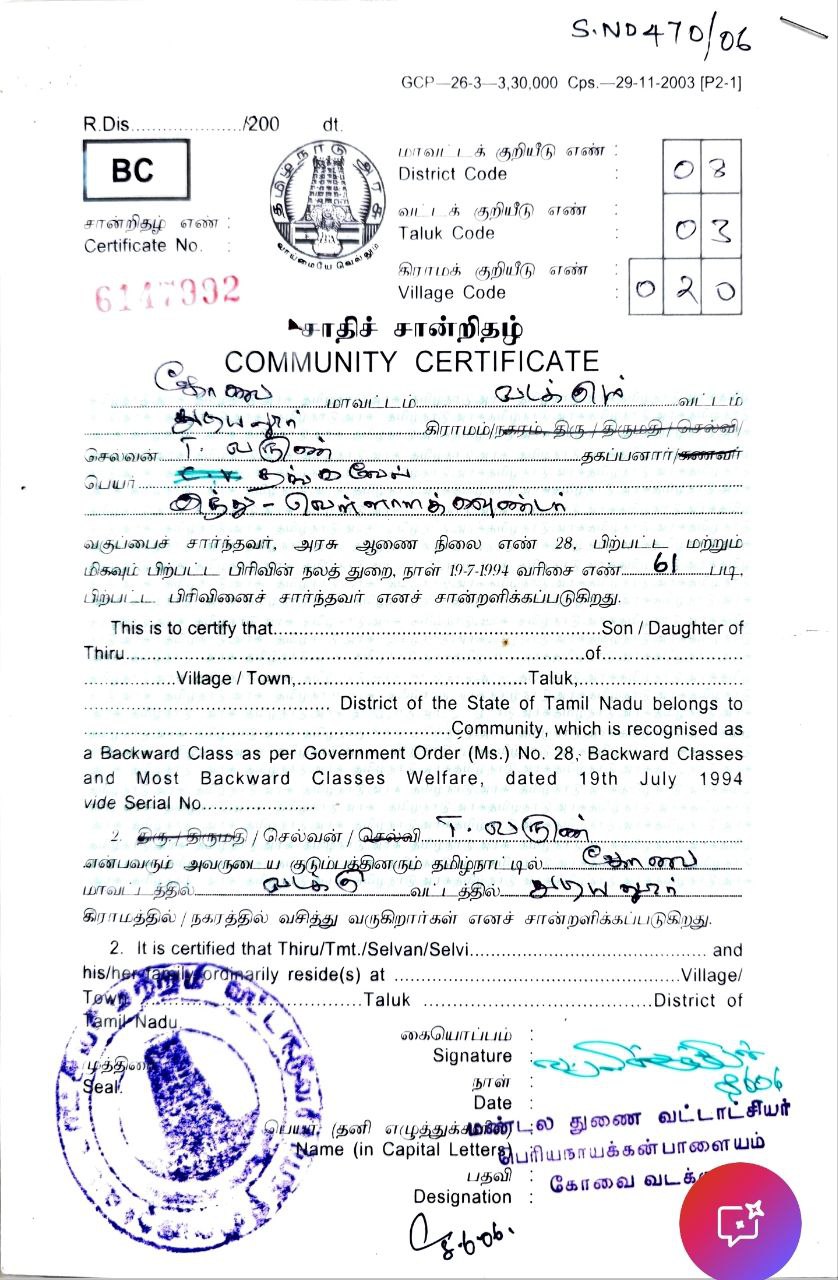 S.NO 470/06
GCP—26-3—3,30,000 Cps.—29-11-2003 [P2-1]
R.Dis....................../200 dt.
BC
தமிழ்நாடு அரசு
வாய்மையே வெல்லும்
மாவட்டக் குறியீடு எண் :
District Code :
03
வட்டக் குறியீடு எண் :
Taluk Code :
03
கிராமக் குறியீடு எண் :
Village Code :
020
சான்றிதழ் எண் :
Certificate No. :
6147992
சாதிச் சான்றிதழ்
COMMUNITY CERTIFICATE
கோவை மாவட்டம் வடக்கு வட்டம்
துடியலூர் கிராமம்/நகரம், திரு / திருமதி / செல்வி/
செல்வன் T. வருண் தகப்பனார்/கணவர்
பெயர் தங்கவேல்
இந்து - வெள்ளாளக்கவுண்டர்
வகுப்பைச் சார்ந்தவர், அரசு ஆணை நிலை எண் 28, பிற்பட்ட மற்றும்
மிகவும் பிற்பட்ட பிரிவின் நலத் துறை, நாள் 19-7-1994 வரிசை எண் 61 படி,
பிற்பட்ட பிரிவினைச் சார்ந்தவர் எனச் சான்றளிக்கப்படுகிறது.
This is to certify that..........Son / Daughter of
Thiru..........of..........
..........Village / Town,..........Taluk,..........
.......... District of the State of Tamil Nadu belongs to
..........Community, which is recognised as
a Backward Class as per Government Order (Ms.) No. 28, Backward Classes
and Most Backward Classes Welfare, dated 19th July 1994
vide Serial No..........
2. திரு. / திருமதி / செல்வன் / செல்வி T. வருண்
என்பவரும் அவருடைய குடும்பத்தினரும் தமிழ்நாட்டில் கோவை
மாவட்டத்தில் வடக்கு வட்டத்தில் துடியலூர்
கிராமத்தில் / நகரத்தில் வசித்து வருகிறார்கள் எனச் சான்றளிக்கப்படுகிறது.
2. It is certified that Thiru/Tmt./Selvan/Selvi.......... and
his/her family ordinarily reside(s) at ..........Village/
Town ..........Taluk ..........District of
Tamil Nadu.
கையொப்பம் :
Signature :
8606
Seal.
நாள் :
Date :
மண்டல துணை வட்டாட்சியர்
பெயர் (தனி எழுத்துக்களில்)
Name (in Capital Letters)
பெரியநாயக்கன்பாளையம்
பதவி :
Designation :
கோவை வடக்கு
8.6.06.